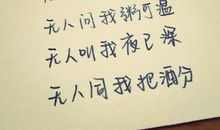 无人问我粥可温
无人叫我夜已深
无人同我把酒分